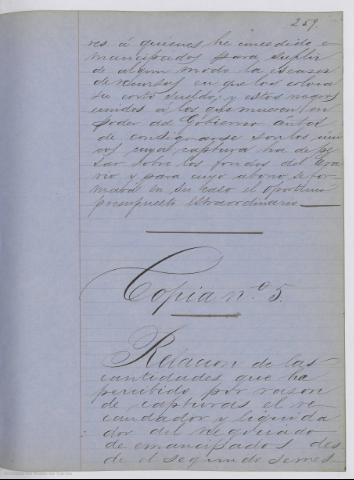 259.
res á quienes he concedido e-
mancipados para suplir
de algun modo la escasez
de recursos en que los coloca
su corto sueldo, y estos negros
unidos á los que mueran en
poder del Gobierno ántes
de consignarse son los úni
cos cuya captura ha de pe
sar sobre los fondos del Era
rio y para cuyo abono se for
mará en su caso el oportuno
presupuesto estraordinario
Copia n.º 5.
Relacion de las
cantidades que ha
percibido por razon
de capturas el re
caudador y liquida
dor del Negociado
de emancipados des
de el segundo semes